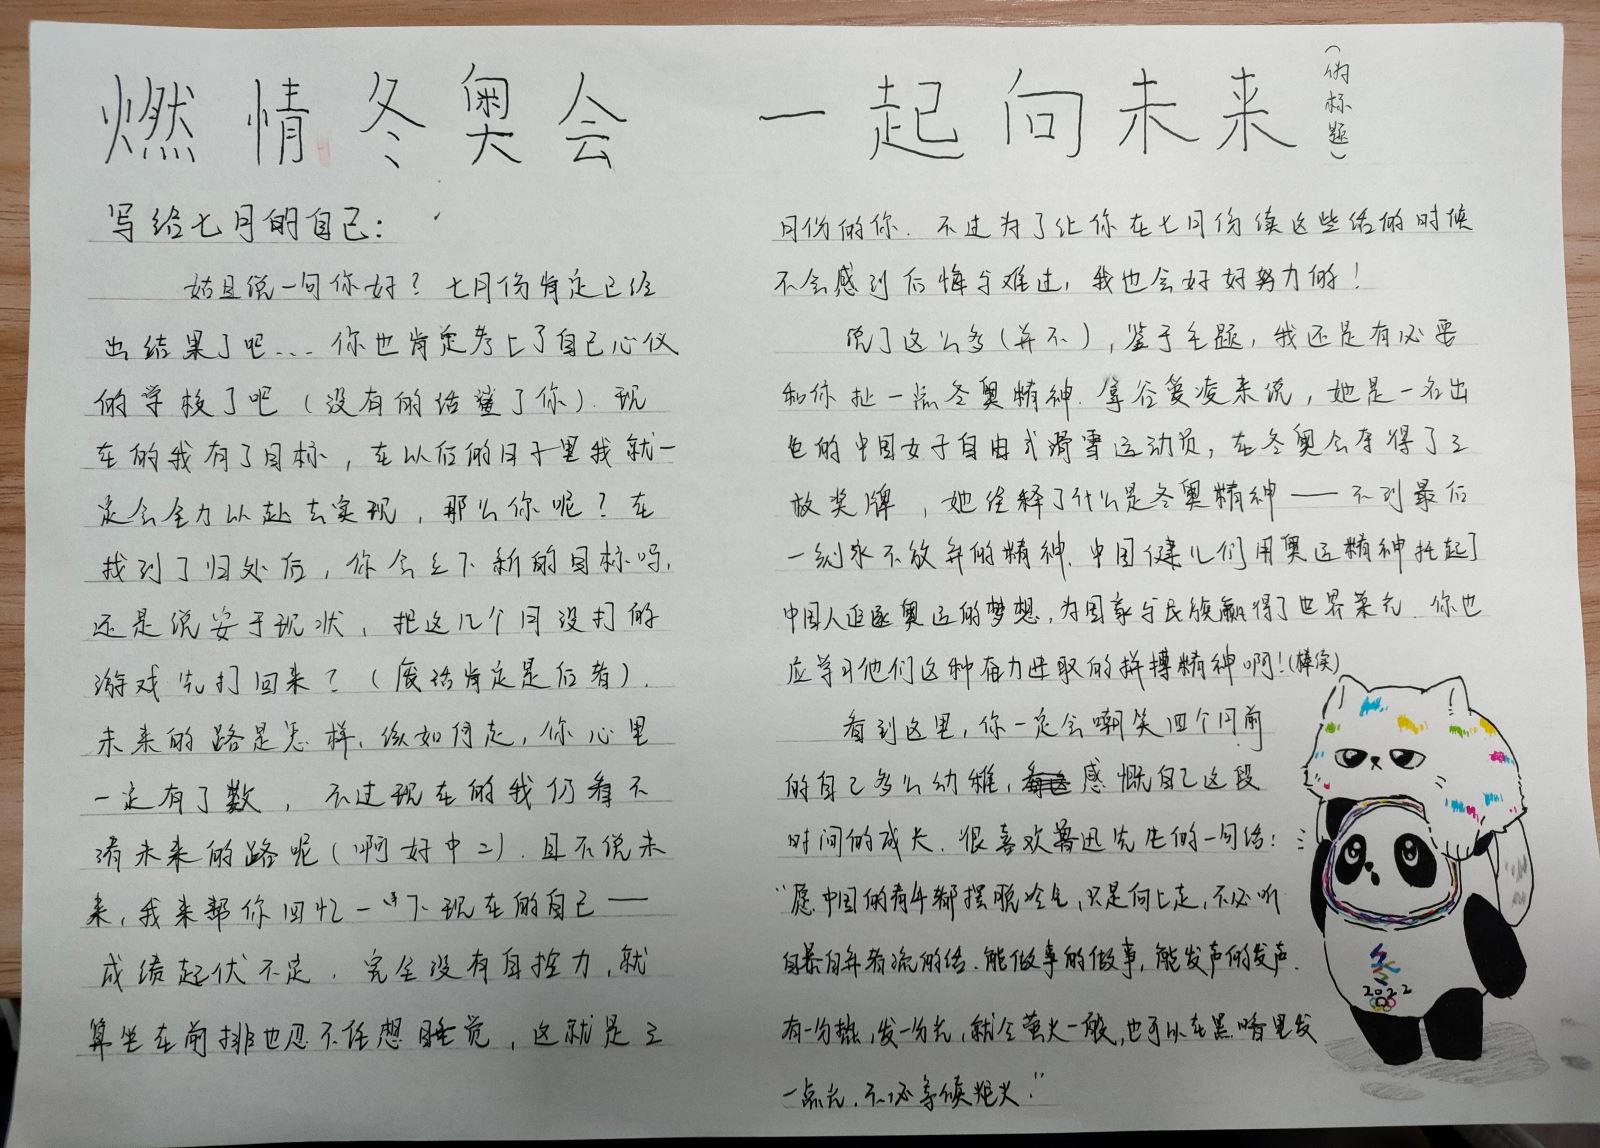 燃情冬奥会 一起向未来
(伪标题)
写给七月的自己:
姑且说一句你好?七月份肯定已经
出结果了吧...你也肯定考上了自己心仪
的学校了吧(没有的话鲨了你).现
在的我有了目标,在以后的日子里我就一
定会全力以赴去实现,那么你呢?在
找到了归处后,你会立下新的目标吗,
还是说安于现状,把这几个月没打的
游戏先打回来?(废话肯定是后者).
未来的路是怎样,该如何走,你心里
一定有了数,不过现在的我仍看不
清未来的路呢(啊好中二).且不说未
来,我来帮你回忆一下现在的自己——
成绩起伏不定.完全没有自控力,就
算坐在前排也忍不住想睡觉,这就是三
月份的你.不过为了让你在七月份读这些话的时候
不会感到后悔与难过,我也会好好努力的!
说了这么多(并不),鉴于主题,我还是有必要
和你扯一点冬奥精神.拿谷爱凌来说,她是一名出
色的中国女子自由式滑雪运动员,在冬奥会夺得了三
枚奖牌,她诠释了什么是冬奥精神——不到最后
一刻永不放弃的精神.中国健儿们用奥运精神托起了
中国人追逐奥运的梦想,为国家与民族赢得了世界荣光.你也
应学习他们这种奋力进取的拼搏精神啊!(棒读)
看到这里,你一定会嘲笑四个月前
的自己多么幼稚,感慨自己这段
时间的成长.很喜欢鲁迅先生的一句话:
"愿中国的青年都摆脱冷气,只是向上走,不必听
自暴自弃者流的话.能做事的做事,能发声的发声.
有一分热,发一分光,就令萤火一般,也可以在黑暗里发
一点光.不必等候炬火."
冬
2022